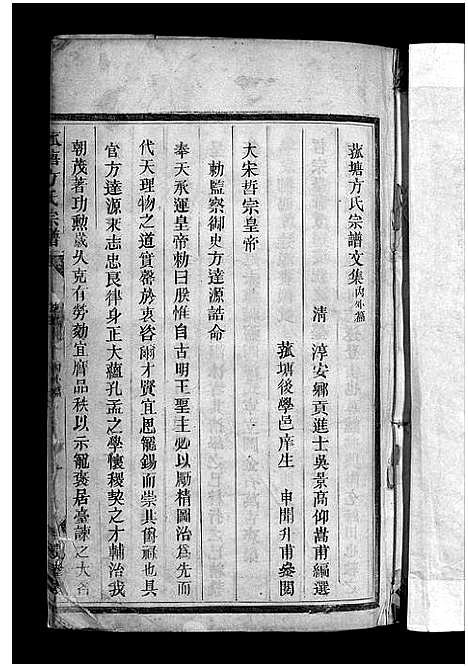 菰塘方氏宗譜文集內外篇
清 淳安鄉貢進士吳景高仰嵩甫編選
菰塘後學邑庠生 申開升甫參閱
大宋哲宗皇帝
勅監察御史方達源誥命
奉天承運皇帝勅曰朕惟自古明王聖主必以勵精圖治爲先而
代天理物之道實罄於衷咨爾才賢宜恩寵錫而崇其爵祿也具
官方達源來志忠艮律身正大蘊孔孟之學懷稷契之才輔治我
朝茂著功勲歲久克有勞勛宜膺品秩以示寵褒居臺諫之大
菰塘方氏宗譜